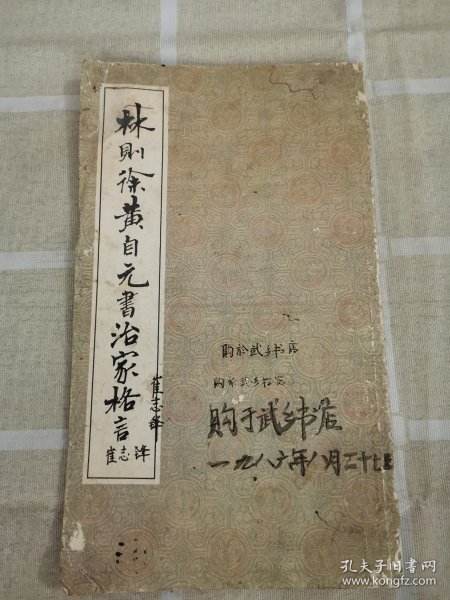 林则徐黄自元書治家格言
崔志锋
崔志锋
购於武乡书店
购於武乡书店
购于武乡书店
一九八六年八月二十七日
孔夫子旧书网
www.kongfz.com